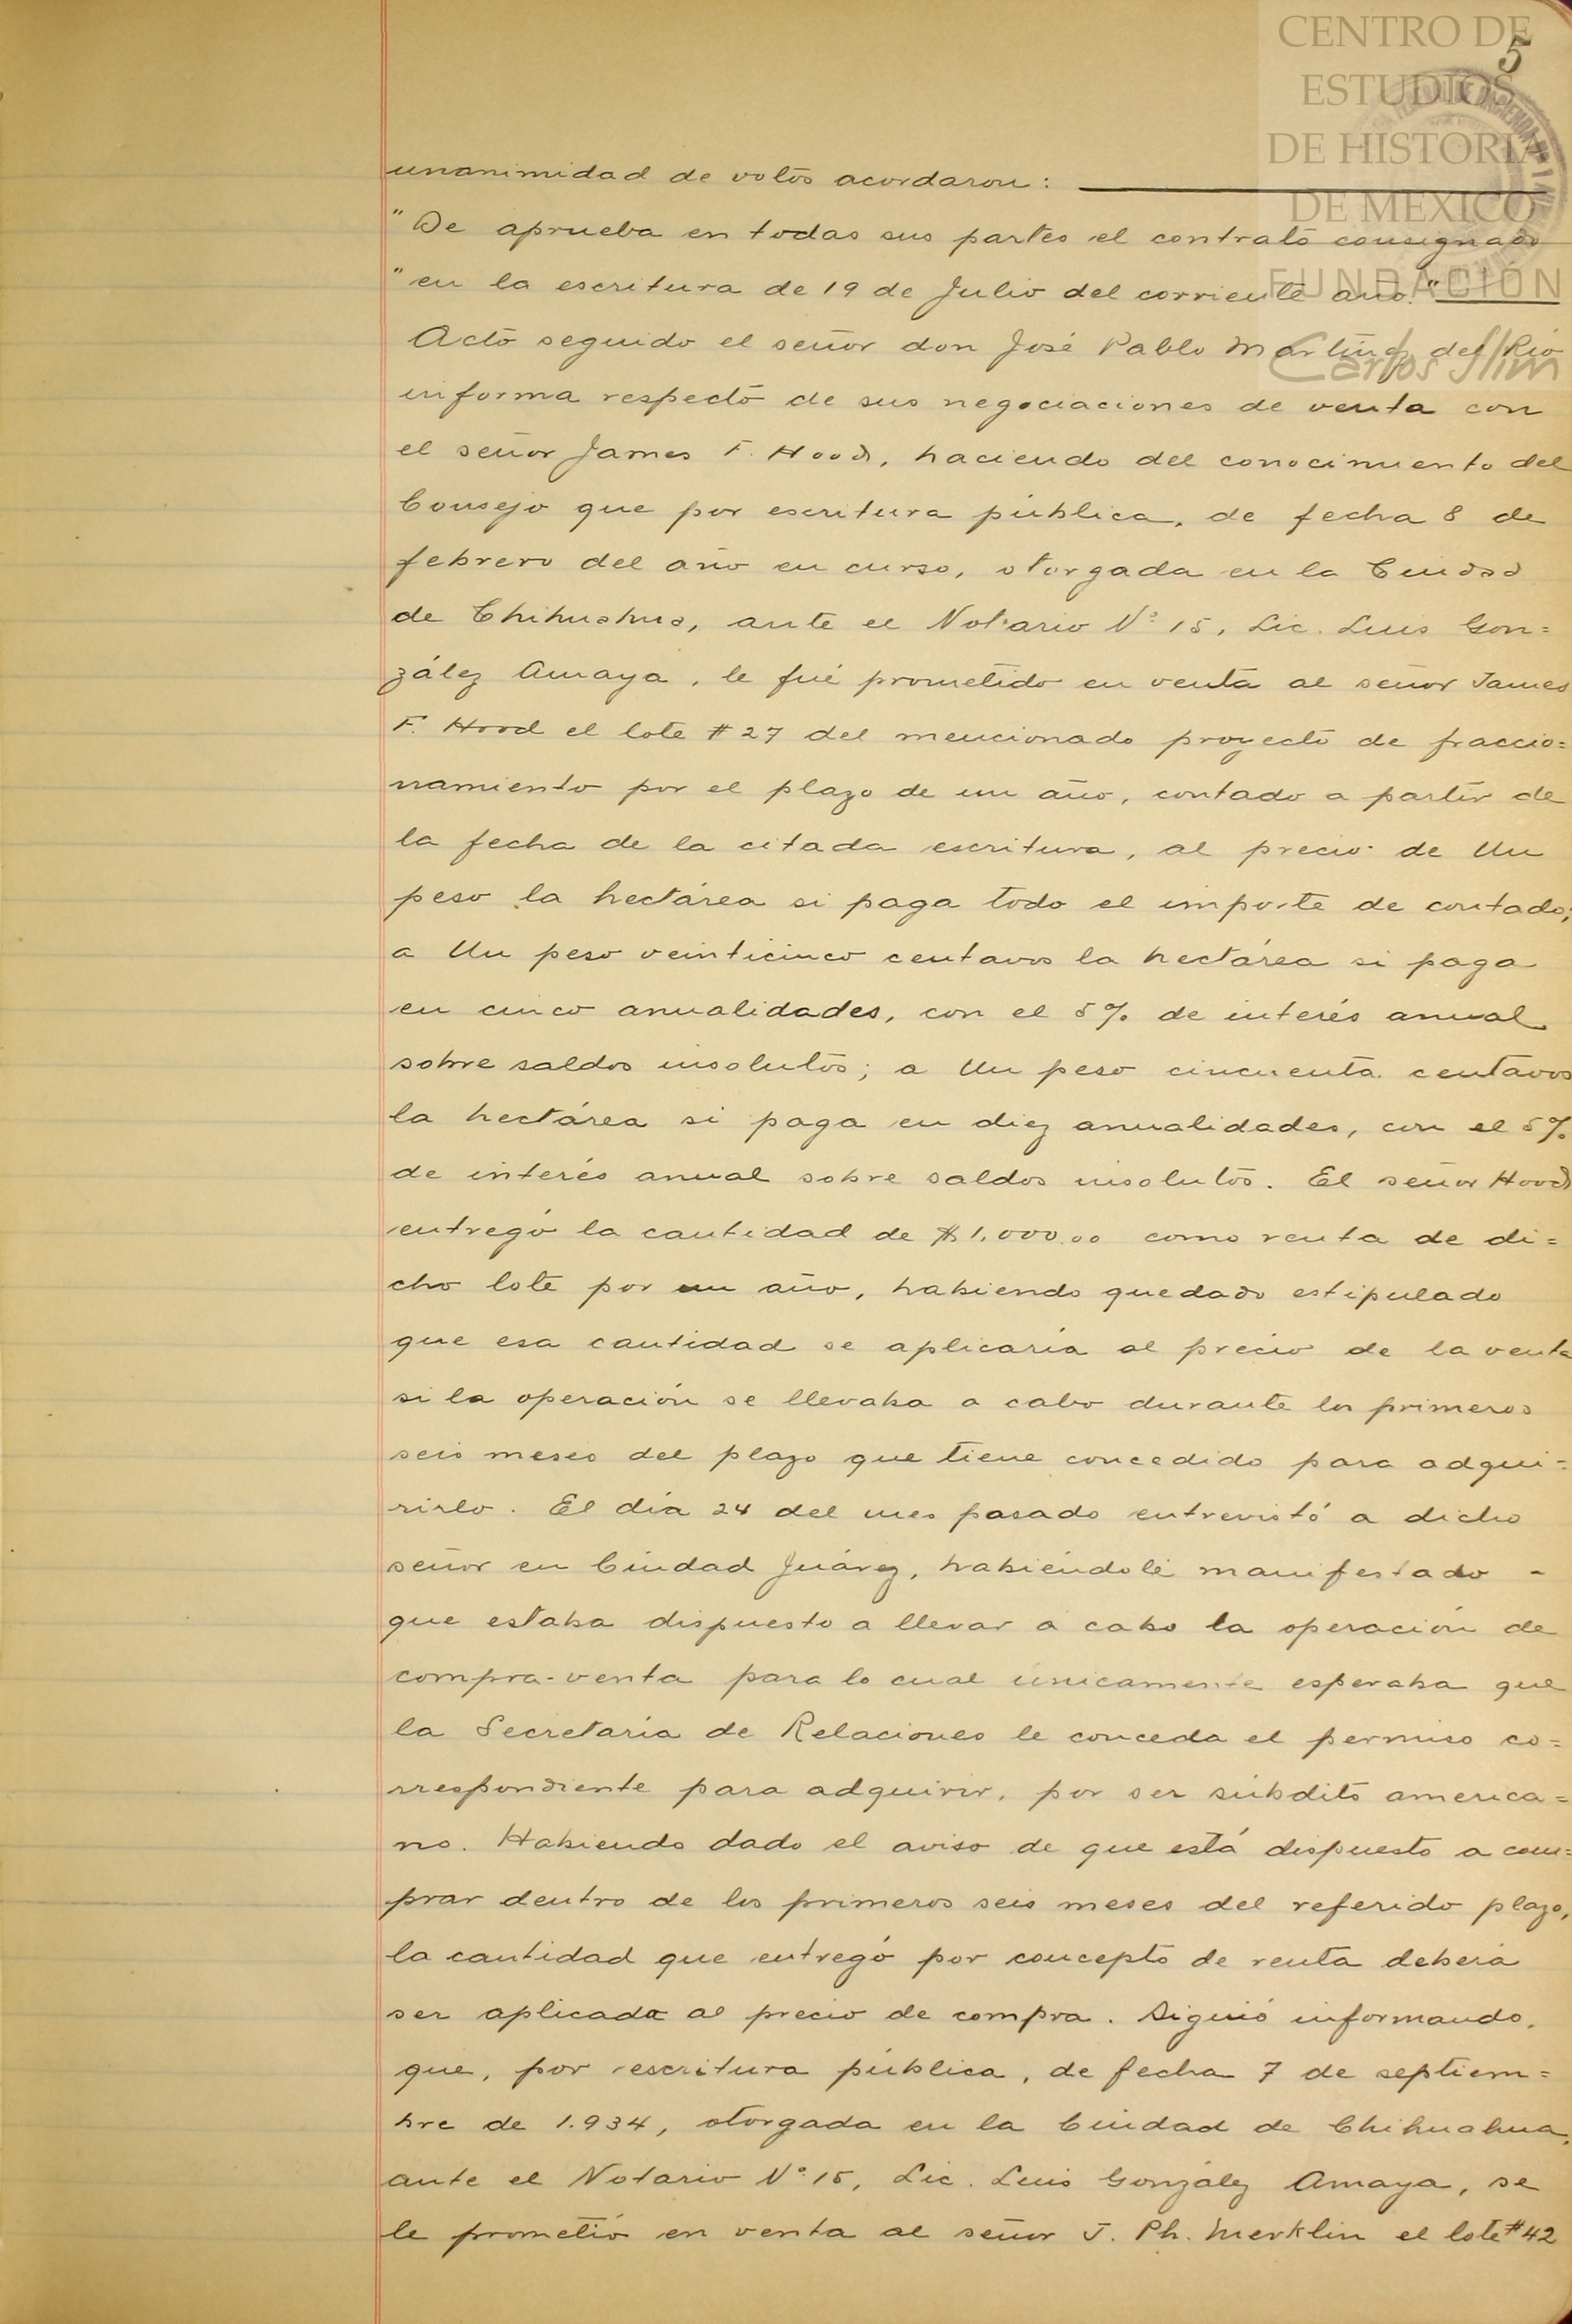 CENTRO DE
ESTUDIOS
DE HISTORIA
DE MEXICO
FUNDACIÓN
Carlos Slim
5
unanimidad de votos acordaron:
"Se aprueba en todas sus partes el contrato consignado
"en la escritura de 19 de Julio del corriente año."
Acto seguido el señor don José Pablo Martínez del Río
informa respecto de sus negociaciones de venta con
el señor James F. Hood, haciendo del conocimiento del
Consejo que por escritura pública, de fecha 8 de
febrero del año en curso, otorgada en la Ciudad
de Chihuahua, ante el Notario Nº 15, Lic. Luis Gon=
zález Amaya, le fué prometido en venta al señor James
F. Hood el lote #27 del mencionado proyecto de fraccio=
namiento por el plazo de un año, contado a partir de
la fecha de la citada escritura, al precio de Un
peso la hectárea si paga todo el importe de contado;
a Un peso veinticinco centavos la hectárea si paga
en cinco anualidades, con el 5% de interés anual
sobre saldos insolutos; a Un peso cincuenta centavos
la hectárea si paga en diez anualidades, con el 5%
de interés anual sobre saldos insolutos. El señor Hood
entregó la cantidad de $1.000.00 como renta de di=
cho lote por un año, habiendo quedado estipulado
que esa cantidad se aplicaría al precio de la venta
si la operación se llevaba a cabo durante los primeros
seis meses del plazo que tiene concedido para adqui=
rirlo. El día 24 del mes pasado entrevistó a dicho
señor en Ciudad Juárez, habiéndole manifestado -
que estaba dispuesto a llevar a cabo la operación de
compra-venta para lo cual únicamente esperaba que
la Secretaría de Relaciones le conceda el permiso co=
rrespondiente para adquirir, por ser súbdito america=
no. Habiendo dado el aviso de que está dispuesto a com=
prar dentro de los primeros seis meses del referido plazo,
la cantidad que entregó por concepto de renta deberá
ser aplicada al precio de compra. Siguió informando,
que, por escritura pública, de fecha 7 de septiem=
bre de 1.934, otorgada en la Ciudad de Chihuahua,
ante el Notario Nº 15, Lic. Luis González Amaya, se
le prometió en venta al señor J. Ph. Merklin el lote #42